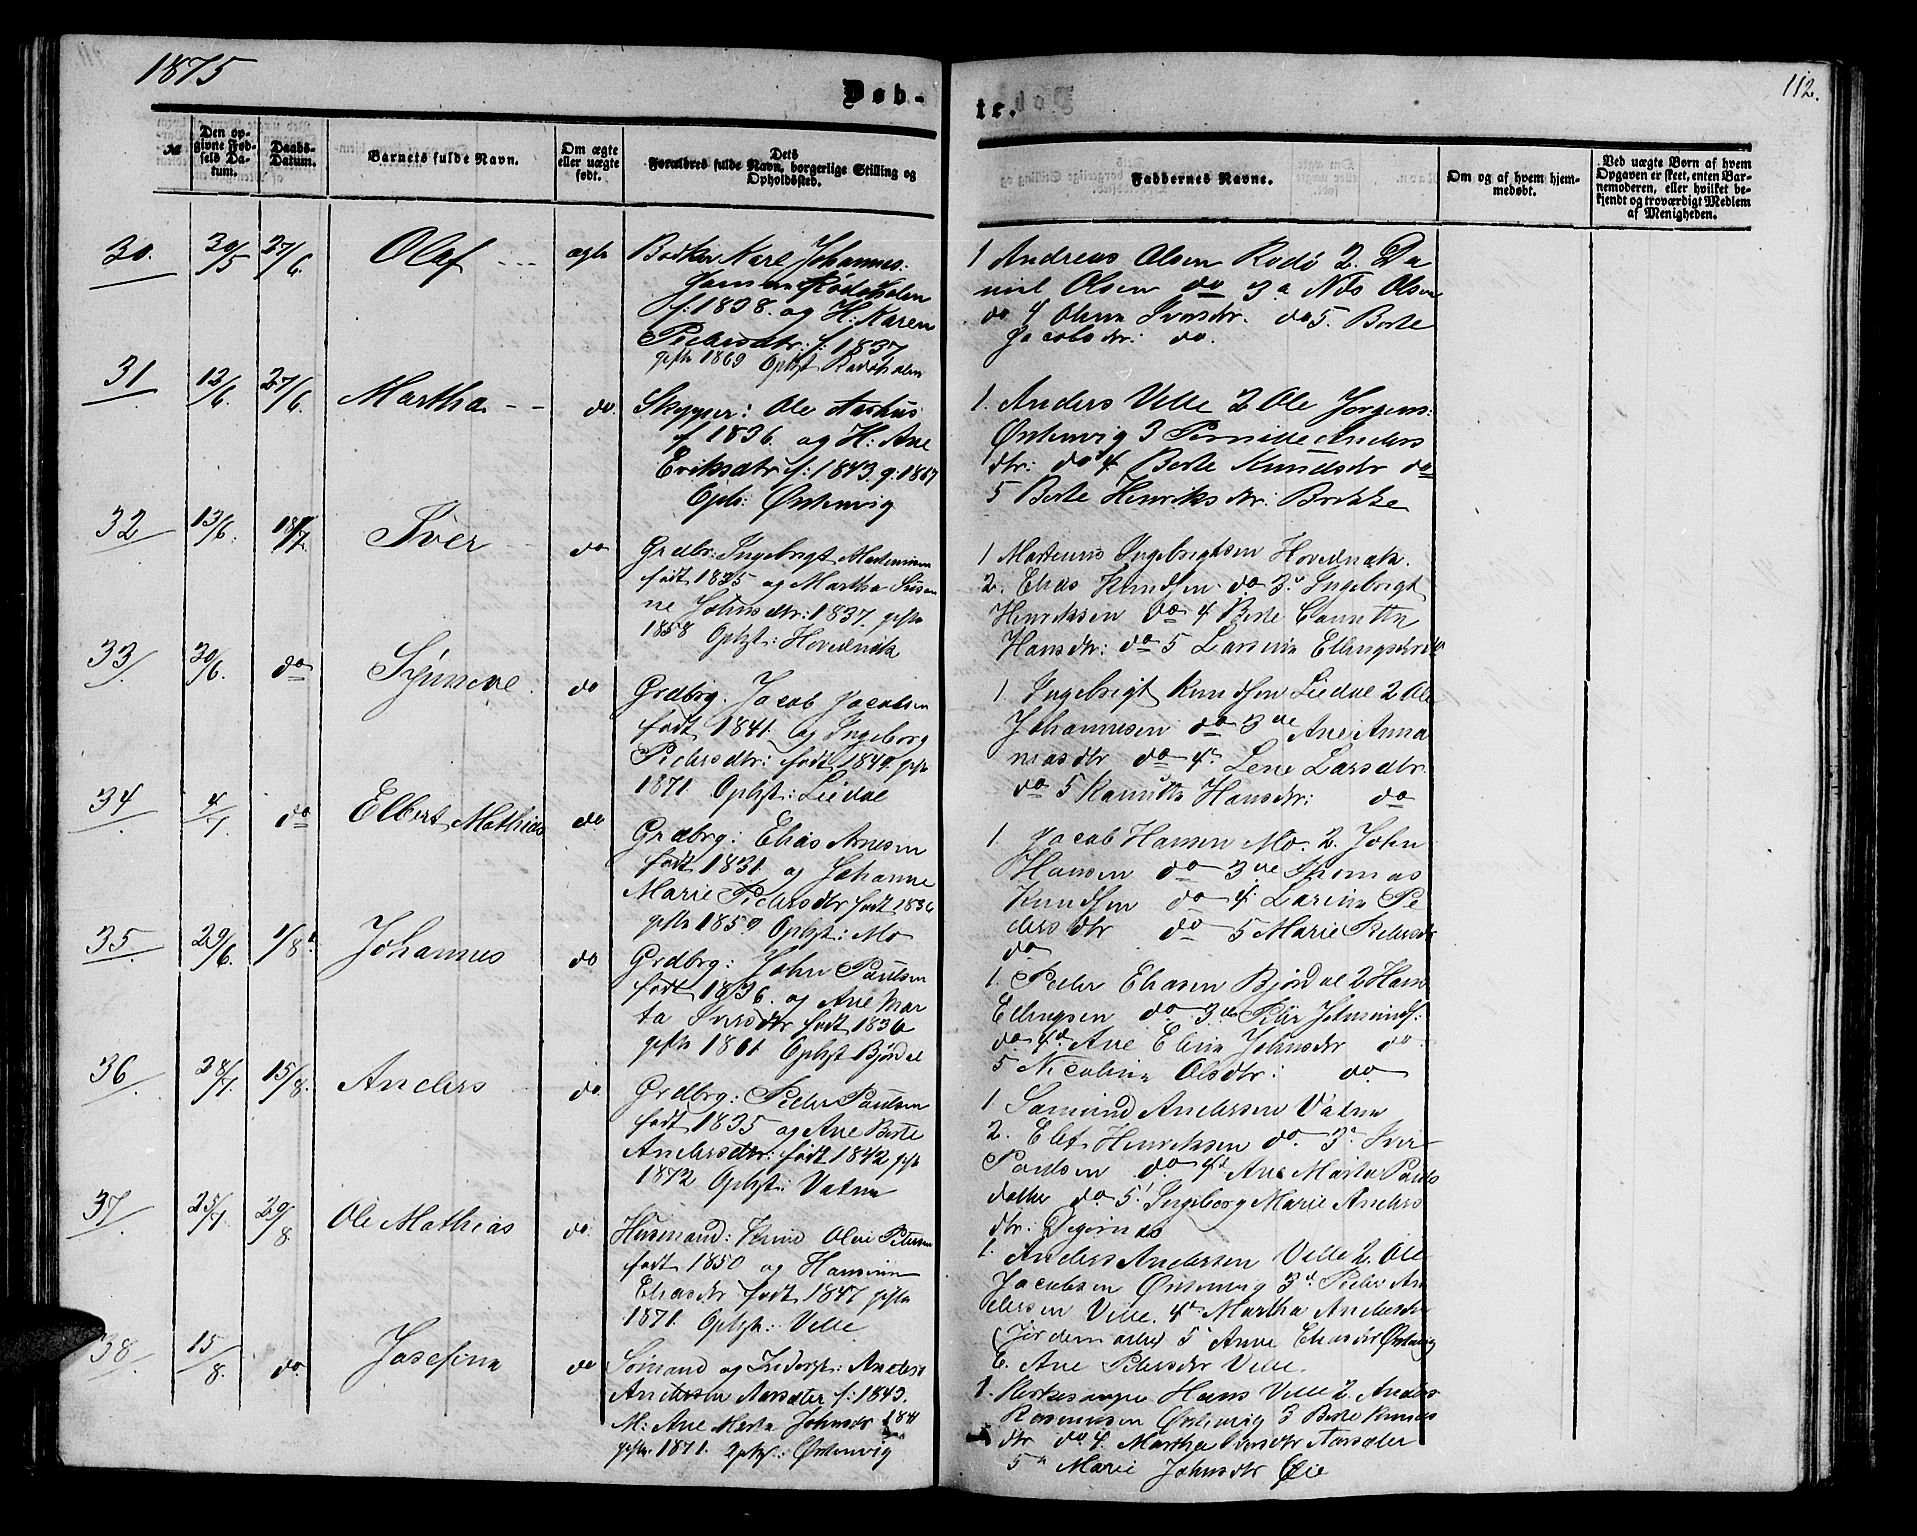 1875
112.
Døb-
te.
№
Den op-
givne Fød-
sels Da-
tum.
Daabs-
Datum.
Barnets fulde Navn.
Om ægte
eller uægte
født.
Dets
Forældres fulde Navn, borgerlige Stilling og
Opholdssted.
Faddernes Navne.
Om og af hvem hjem-
medøbt.
Ved uægte Børn af hvem
Opgaven er skeet, enten Bar-
nemoderen, eller hvilket be-
kjendt og troværdigt Medlem
af Menigheden.
30. 30/5 27/6. Olaf ægte
Bødker Karl Johannes:
f: 1838. og H: Karen
Pedersdtr: f: 1837
gift 1869 Ophst Rødsholen
1 Andreas Olsen Rødø 2. Da
niel Olsen do 3 Nils Olsen
do 4 Olena Iversdr. do 5. Berte
Jacobsdtr: do.
31 12/6. 27/6. Martha do.
Skypper: Ole Aarhus
f 1836. og H: Ane
Eriksdtr f: 1843 g. 1867
Oph: Østenvig
1. Anders Velle 2 Ole Jørgens:
Østenvig 3 Pernille Anders
dtr: do 4 Berte Knudsdr do
5 Berte Henriksdtr. Brekke
32 13/6. 18/7. Iver do
Grdbr: Ingebrigt Martinusen
født 1835 og Martha Susan
ne Johnsdtr: 1837. gift
1858 Ophst: Hovednak
1 Martinus Ingebrigtsen Hovednak.
2. Elias Knudsen do 3. Ingebrigt
Henriksen do 4 Berte
Hansdtr: do 5 Larsine Ellingsdtr do
33 30/6. do Synneve do
Grdbrg. Jacob Jacobsen
født 1841. og Ingeborg
Pedersdtr: født 1849 gift
1871. Ophst: Liedal
1. Ingebrigt Knudsen Liedal 2 Ole
Johannesen do 3 Ane Anna
niasdtr do 4. Lene Larsdtr.
do 5 Hansdtr: do
34 4/7. do Elbert Mathias do
Grdbrg: Elias Arnesen
født 1831. og Johanne
Marie Pedersdtr født 1836
gift 1859 Ophst: Mo
1. Jacob Hansen Mo. 2. John
Hansen do 3 Thomas
Knudsen do 4. Larine Pe
dersdtr do 5 Marie Pedersdtr
do
35 29/6. 1/8 Johannes do
Grdbrg: John Paulsen
født 1836. og Ane Mar
ta Iversdtr født 1836
gift 1861 Ophst Bjørdal
1. Peder Eliasen Bjørdal 2 Hans
Ellingsen do 3 Peder
do 4. Ane Eline Johnsdtr do.
5 Nicoline Olsdtr: do
36 28/7. 15/8. Anders do
Grdbrg: Peder Paulsen
født 1835 og Ane Berte
Andersdtr: født 1842 gift
1872 Ophst: Vatne
1 Samund Andersen Vatne
2. Elef Henriksen do. 3. Iver
Paulsen do 4 Ane Marta Pauls
datter do 5. Ingeborg Marie Anders
dtr:
37 25/7 29/8. Ole Mathias do.
Husmand: Knud Olai Petersen
født 1850 og Hansine
Eliasdtr født 1847 gift
1871. Ophst: Velle
1. Anders Andersen Velle 2. Ole
Jacobsen Østenvig 3 Peder An
dersen Velle. 4. Martha Andersdtr
(Jordemoder) 5 Anne Eliasdtr Østenvig
6. Ane Pedersdtr Velle.
38 15/8. do. Josefine do
Sømand og Inderst: Anders
Andersen Aarsæter f: 1843.
M: Ane Marta Johnsdtr 1841
gift. 1871. Ophst.: Østenvig
1. Kirkesanger Hans Velle 2. Anders
Rasmussen Østenvig 3 Berte Knuds
dtr do 4. Martha Iversdtr Aarsæter
5 Marie Johnsdtr Øie